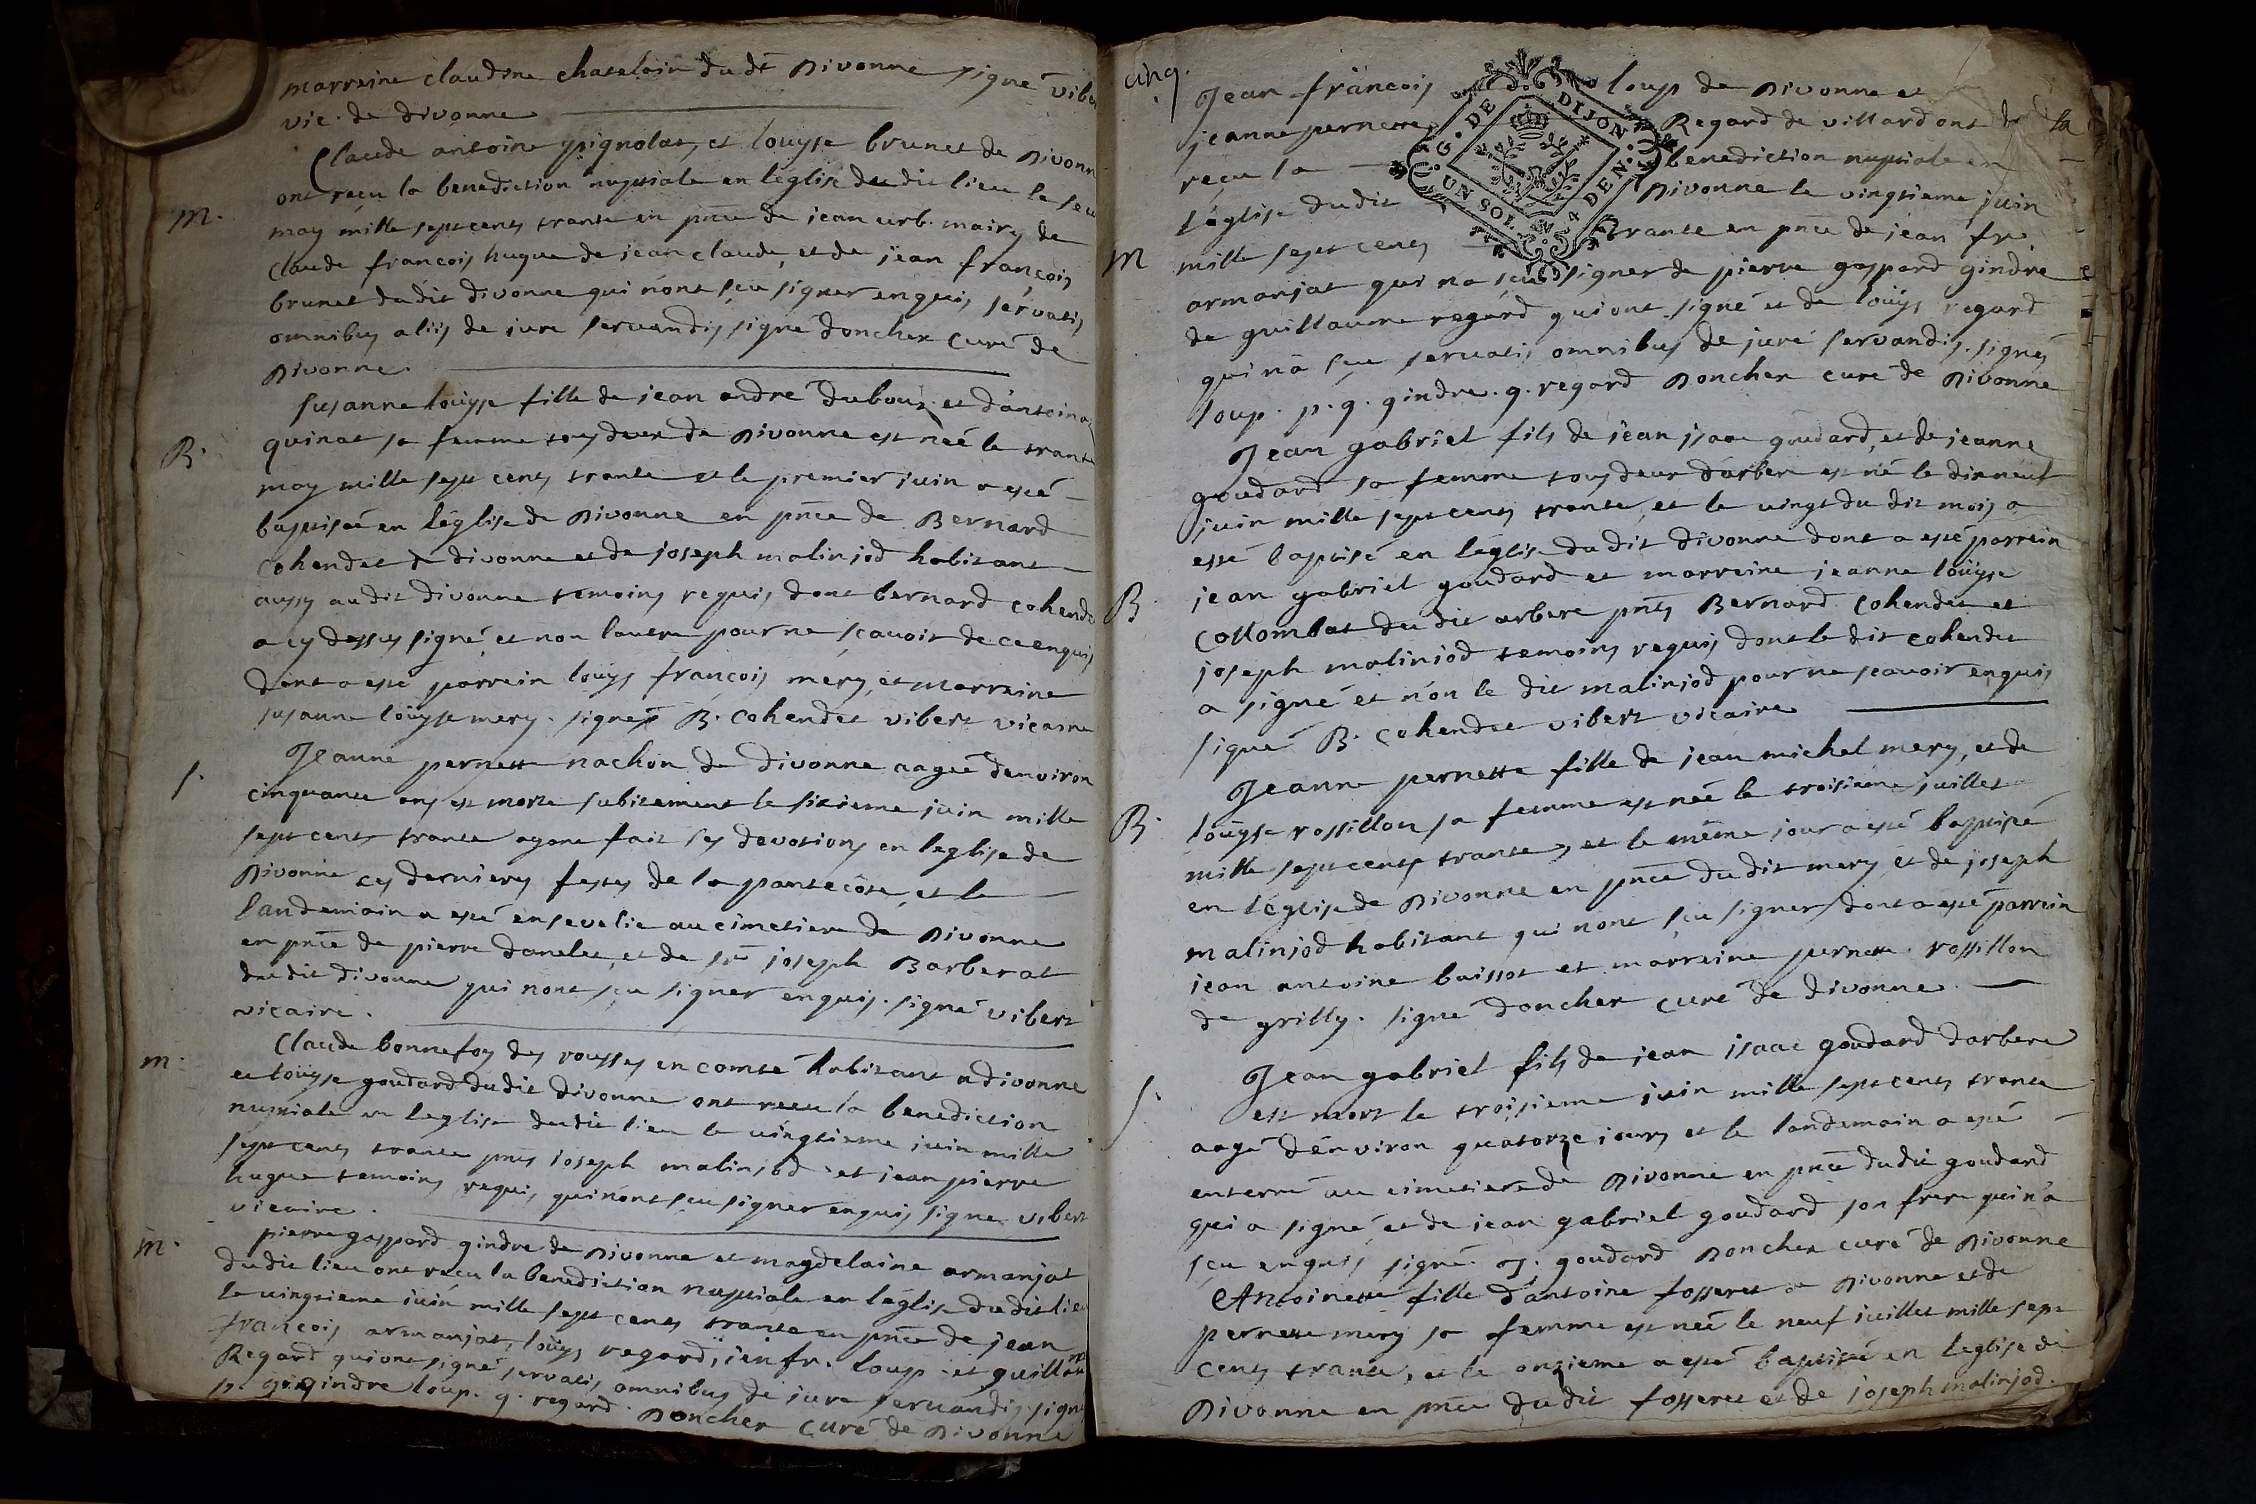 marreine claudine chatelain du dt Divonne signé vib
vic. de divonne
Claude antoine pignolat, et louyse brunet de Divonn
ont reçu la benediction nuptiale en léglise du dit lieu le
m.
may mille sept cents trante en pnce de jean urb. mairy de
Claude françois hugue de jean claude, et de jean françois
brunet du dit divonne qui nónt sçu signer enquis, servatis
omnibus aliis de iure servandis signé doncher curé de
Divonne.
Susanne loüyse fille de jean andré dubouz et dántoina
B.
quinat sa femme tous deux de Divonne est néé le trante
may mille sept cents trante et le premier juin a esté
baptiséé en léglise de Divonne en pnce de Bernard
Cohendet de divonne et de joseph malinjod habitant
aussy au dit divonne temoins requis dont bernard cohende
a cy dessus signé, et non lautre pour ne sçavoir de ce enquis
dont a esté parrein loüys françois mery, et marreine
susanne loüyse mery. signés B. Cohendet vibert vicaire
S.
Jeanne pernette nachon de divonne aagéé dénviron
cinquante ans est morte subitement le sixieme juin mille
sept cents trante ayant fait ses devotions en leglise de
Divonne ces dernieres festes de la pantecôte, et le
landemain a esté ensevelie au cimetiere de Divonne
en pnce de pierre danelet, et de sr joseph Barberat
du dit divonne qui nont sçu signer enquis. signé vibert
vicaire.
m.
Claude bonnefoy des rousses en comté habitant a divonne
et loüyse goudard du dit divonne ont receu la benediction
nuptiale en leglise du dit lieu le vingtieme juin mille
sept cents trante pnts joseph malinjod et jean pierre
hugue temoins requis, qui nónt sçu signer enquis signé vibert
vicaire.
m.
pierre gaspard gindre de Divonne et magdelaine armanjat
du dit lieu ont reçu la benediction nuptiale en léglise du dit lieu
le vingtieme juin mille sept cents trante en pnce de jean
françois armanjat, loüys regard, jean fr. loup et guillaume
Regard qui ont signé servatis omnibus de iure servandis. signé
p. g. gindre loup. g. regard. Doncher Curé de Divonne
cinq.
Jean françois loup de Divonne et
jeanne pernette Regard de villard ont
reçu la benediction nuptiale en la
léglise du dit Divonne le vingtieme juin
G. DE DIJON
UN SOL 4 DEN.
M
mille sept cents trante en pnce de jean fr.
armanjat qui na sçu signer de pierre gaspard gindre
de guillaume regárd qui ont signé et de loüys regard
qui nà sçu servatis omnibus de juré servandis. signés
loup. p. g. gindre. g. regard Doncher curé de Divonne
Jean gabriel fils de jean isaac goudard, et de jeanne
goudard sa femme tous deux dárbere est né le dixneuf
juin mille sept cents trante, et le vingt du dit mois a
esté baptisé en léglise du dit divonne dont a esté parrein
B
jean gabriel goudard et marreine jeanne loüyse
Collombat du dit arbere pnts Bernard Cohendet et
joseph malinjod temoins requis dont le dit cohendet
a signé et nón le dit malinjod pour ne sçavoir enquis
signé B. Cohendet vibert vicaire
Jeanne pernette fille de jean michel mery, et de
B.
loüyse rossillon sa femme est néé le troisieme juillet
mille sept cents trante, et le méme jour a esté baptisé
en léglise de Divonne en pnce du dit mery et de joseph
malinjod habitant qui nont sçu signer dont a esté parrein
jean antoine buissot et marreine pernette rossillon
de grilly. signé doncher curé de divonne.
Jean gabriel fils de jean isaac goudard darbere
S.
est mort le troisieme juin mille sept cents trante
aagé dénviron quatorze iours et le landemain a esté
enterré au cimetiere de Divonne en pnce du dit goudard
qui a signé et de jean gabriel goudard son frere qui nà
sçu enquis signé. J. goudard Doncher curé de Divonne
Antoinette fille dántoine fosseret a Divonne et de
pernette mery sa femme est néé le neuf juillet mille sept
cents trante, et le onzieme a esté baptiséé en leglise de
Divonne en pnce du dit fosseret et de joseph malinjod.